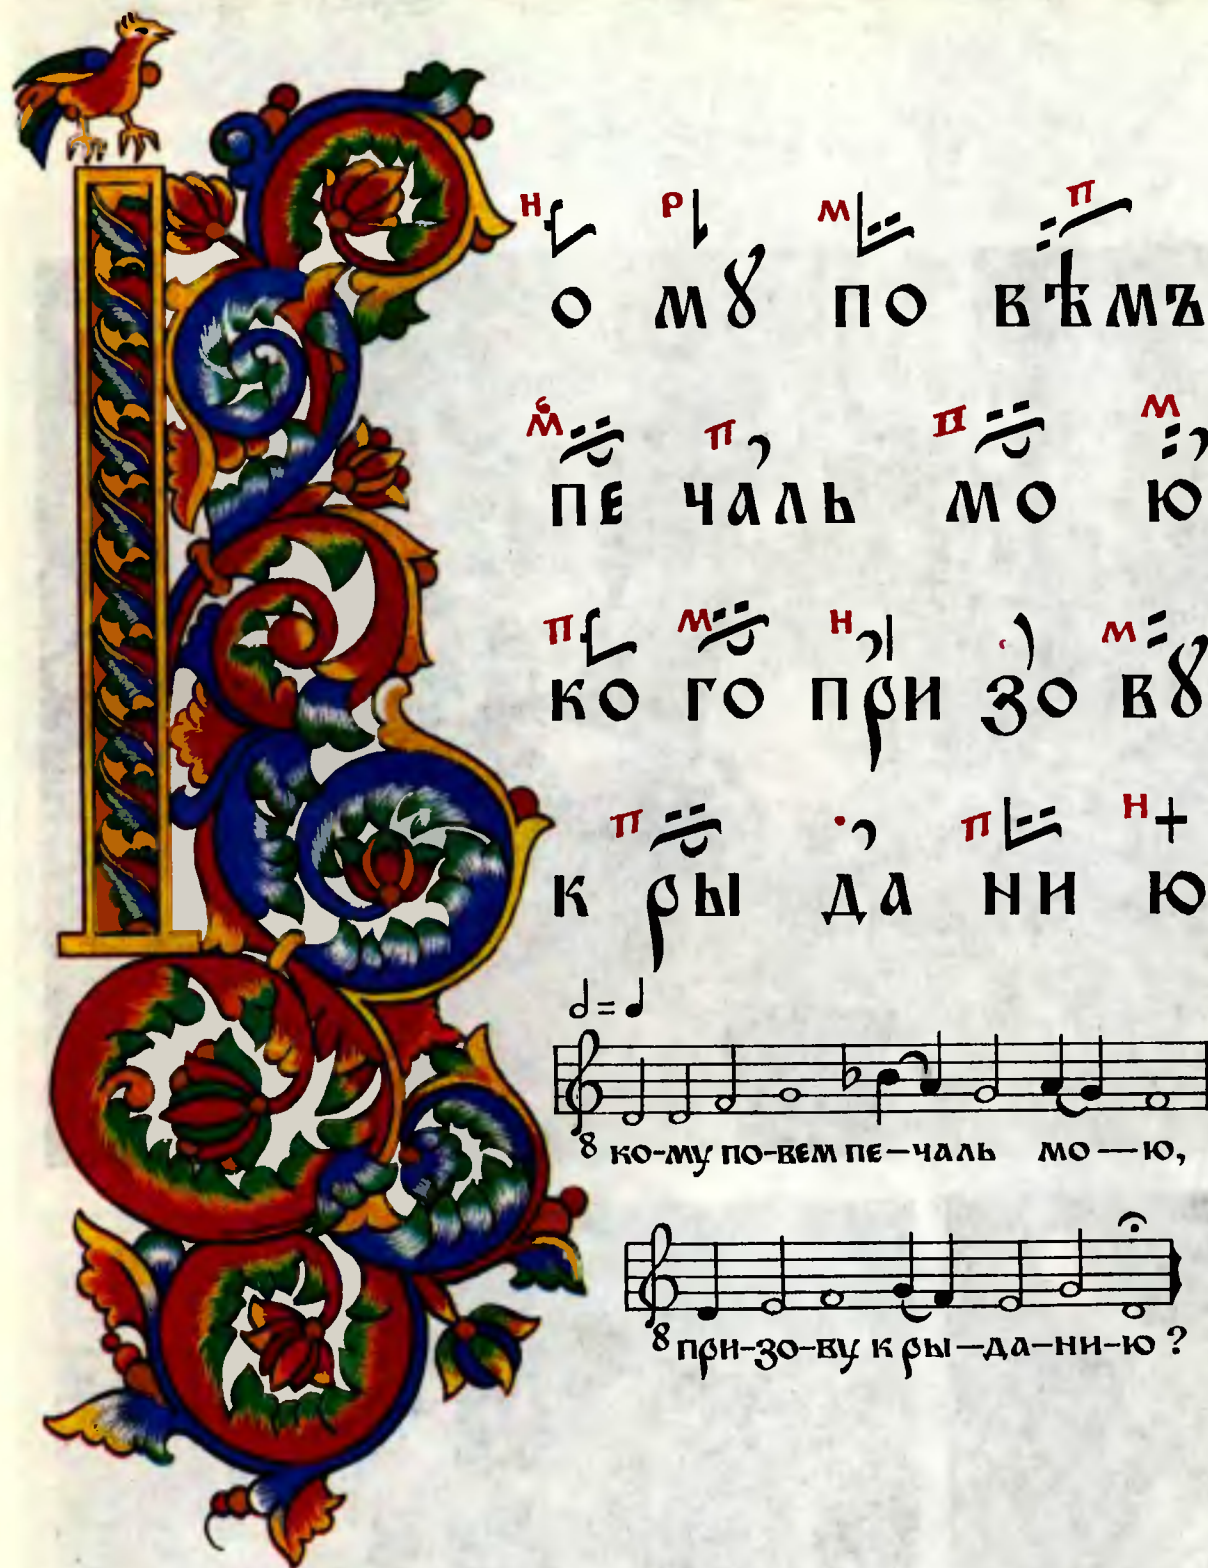 К о мꙋ по вѣмъ
пе чаль мо ю
ко го при зо вꙋ
к ры да ни ю
ко-му по-вем пе-чаль мо-ю,
при-зо-ву к ры-да-ни-ю?